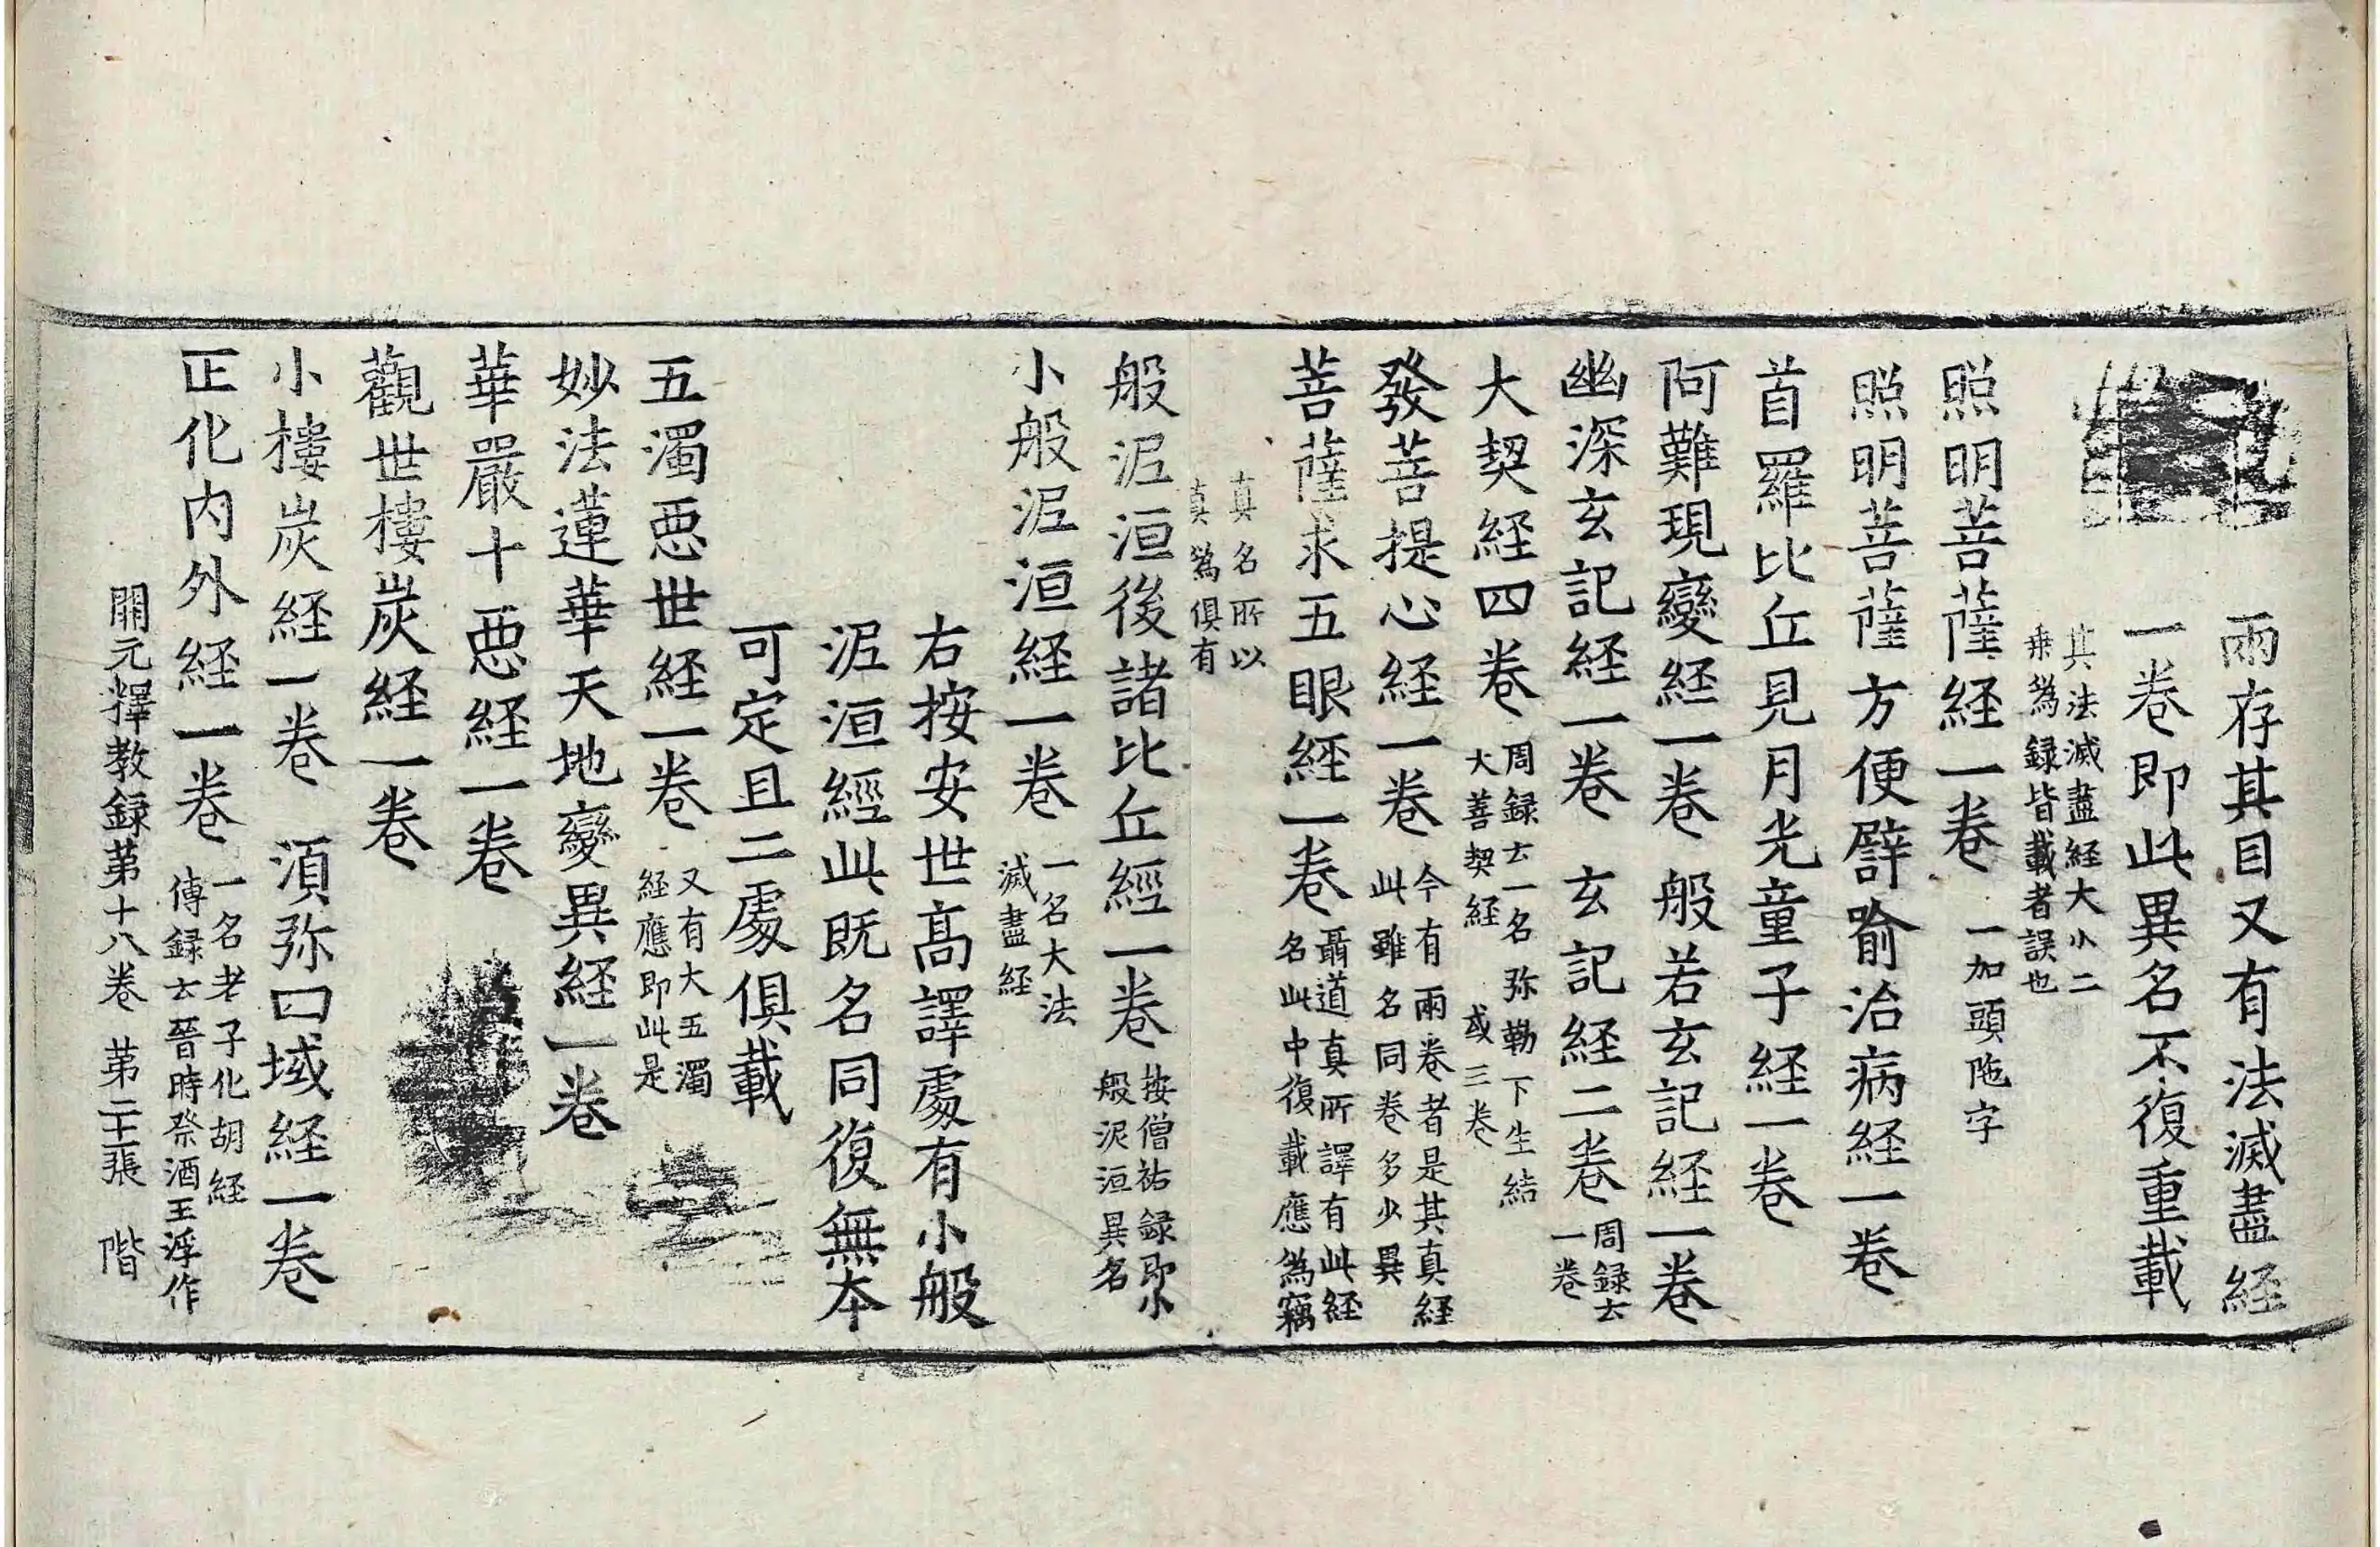 兩存其目又有法滅盡経
一卷即此異名不復重載
其法滅盡経大小二
乗為録皆載者誤也
照明菩薩経一卷 一加頭陁字
照明菩薩方便譬喻治病経一卷
首羅比丘見月光童子経一卷
阿難現變経一卷 般若玄記経一卷
幽深玄記経一卷 玄記経二卷 周録云
一卷
大契経四卷 周録云一名弥勒下生結
大善契経 或三卷
發菩提心経一卷 今有兩卷者是其真経
此雖名同卷多少異
菩薩求五眼経一卷 聶道真所譯有此経
名此中復載應為竊
真名所以
真為俱有
般泥洹後諸比丘經一卷 按僧祐録即小
般泥洹異名
小般泥洹経一卷 一名大法
滅盡経
右按安世髙譯處有小般
泥洹經此既名同復無本
可定且二處俱載
五濁惡世経一卷 又有大五濁
経應即此是
妙法蓮華天地變異経一卷
華嚴十惡経一卷
觀世樓炭経一卷
小樓炭経一卷 湏弥四域経一卷
正化内外経一卷 一名老子化胡経
傳録云晉時祭酒王浮作
開元釋教録第十八卷 第二十張 階